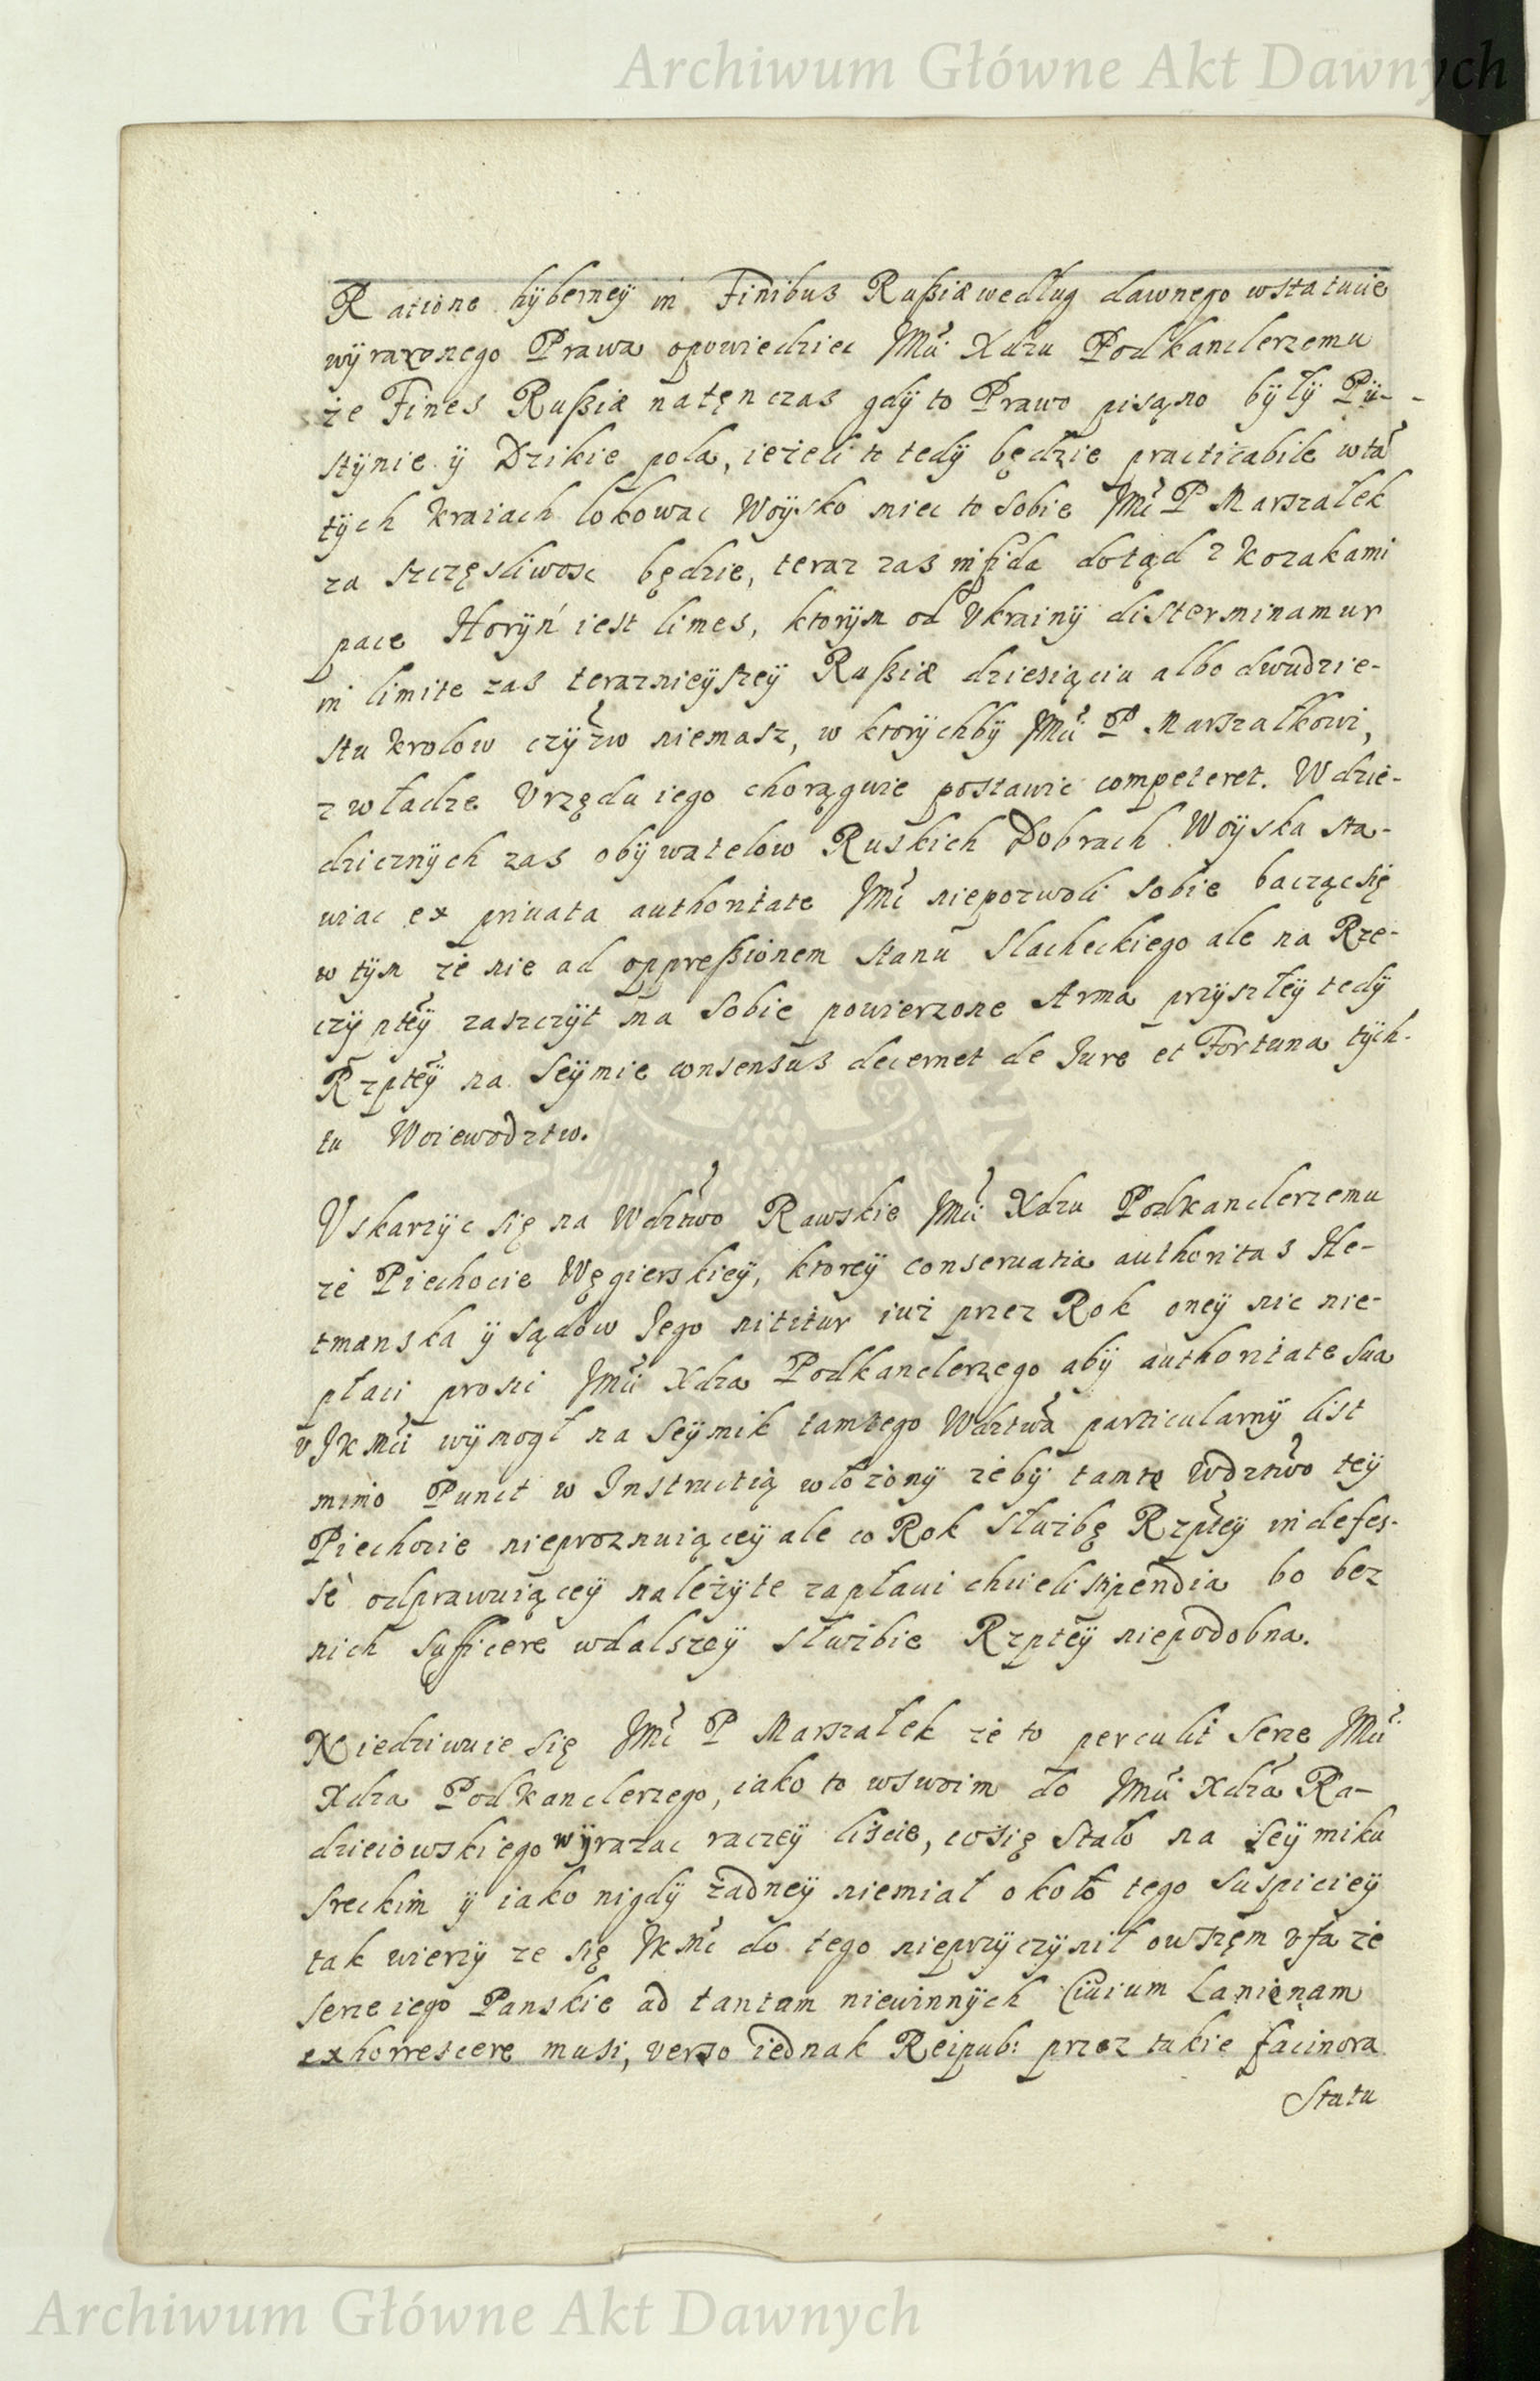 Archiwum Główne Akt Dawnych
Ratione hÿberneÿ in Finibus Rußiæ według dawnego wstatucie
wÿrazonego Prawa opowiedziec Jmci Xdzu Podkanclerzemu
że Fines Rußiæ natęnczas gdÿ to Prawo pisąno bÿłÿ Pu-
stÿnie ÿ Dzikie pola, ieżeli to tedÿ będzie practicabile wta
tÿch Kraiach lokowac Woÿsko miec to sobie Jmć P Marszałek
za szczęsliwosc będzie, teraz zas infida dotąd z Kozakami
pace Horÿń iest limes, ktorÿm od Vkrainÿ disterminamur
in limite zas teraznieÿszeÿ Rußiæ dziesiąciu albo dwudzie-
stu krolow czÿzw niemasz, w ktorÿchbÿ Jmci P Marszałkowi,
z władze Vrzędu iego chorągwie postawic competeret. Wdzie-
dzicznÿch zas obÿwatelow Ruskich Dobrach Woÿska sta-
wiac ex priuata authoritate Jmć niepozwoli sobie bacząc się
w tÿm że nie ad oppreßionem stanu Slacheckiego ale na Rze-
czÿptęÿ zaszczÿt ma sobie powierzone Arma przÿszłeÿ tedÿ
Rzpteÿ na Seÿmie consensus decernet de Jure et Fortuna tÿch-
tu Woiewodztw.
Vskarzÿc się na Wdztwo Rawskie Jmci Xdzu Podkanclerzemu
że Piechocie Węgierskieÿ, ktoreÿ conseruatia authoritas He-
tmanska ÿ sądow Jego nititur iuż przez Rok oneÿ nic nie-
płaci prosić Jmci Xdza Podkanclerzego abÿ authoritate sua
v JKMci wÿmogł na Seÿmik tamtego Wdztwa particularnÿ list
mimo Punct w Instructią włożonÿ żebÿ tamte Wdztwo teÿ
Piechocie nieproznuiąceÿ ale co Rok służbę Rzpteÿ indefes-
se odprawuiąceÿ należÿte zapłaci chcieli stipendia bo bez
nich sufficere wdalszeÿ służbie Rzpteÿ niepodobna.
Niedziwuie się Jmć P Marszałek że to perculit serce Jmci
Xdza Podkanclerzego, iako to wswoim do Jmci Xdza Ra-
dzieiowskiego wÿrazac raczeÿ liście, co się stało na Seÿmiku
sreckim ÿ iako nigdÿ żadneÿ niemiał około tego suspicieÿ
tak wierzÿ ze się JKMć do tego nieprzÿczÿnił owszęm vfa że
serce iego Panskie ad tantam niewinnÿch Ciuium Lanienam
exhorrescere musi, verso iednak Reipub: przez takie facinora
Statu
Archiwum Główne Akt Dawnych